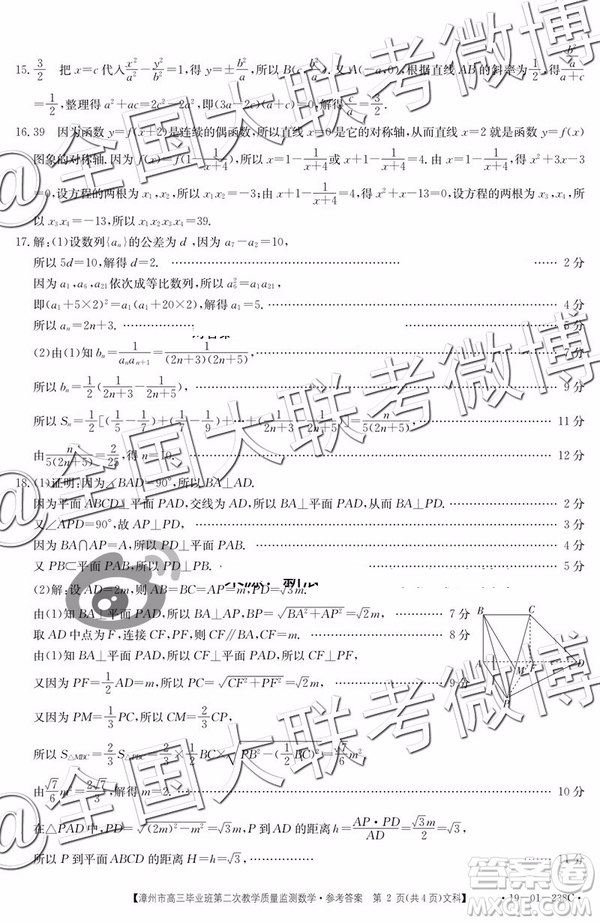 15. 3/2 把 x=c 代入 x²/a² - y²/b² =1,得 y=± b²/a,所以 B(c, b²/a).又 A(-a,0),根据直线 AB 的斜率为 1/2,得
= 1/2,整理得 a²+ac=2c²-2a²,即(3a-2c)(a+c)=0,解得 c/a = 3/2.
16. 39 因为函数 y=f(x+2)是连续的偶函数,所以直线 x=0 是它的对称轴,从而直线 x=2 就是函数 y=f(x)
图象的对称轴.因为 f(x)=f(1- 1/(x+4)),所以 x=1- 1/(x+4) 或 x+1- 1/(x+4) =4.由 x=1- 1/(x+4),得 x²+3x-3
=0,设方程的两根为 x₁,x₂,所以 x₁x₂=-3;由 x+1- 1/(x+4) =4,得 x²+x-13=0,设方程的两根为 x₃,x₄,所
以 x₃x₄=-13,所以 x₁x₂x₃x₄=39.
17. 解:(1)设数列{aₙ}的公差为 d,因为 a₇-a₂=10,
所以 5d=10,解得 d=2. 2 分
因为 a₁,a₆,a₂₁依次成等比数列,所以 a₆²=a₁a₂₁,
即(a₁+5×2)²=a₁(a₁+20×2),解得 a₁=5. 4 分
所以 aₙ=2n+3. 5 分
(2)由(1)知 bₙ= 1/(aₙaₙ₊₁) = 1/((2n+3)(2n+5)),
所以 bₙ= 1/2 (1/(2n+3) - 1/(2n+5)), 9 分
所以 Sₙ= 1/2 [(1/5 - 1/7)+(1/7 - 1/9)+…+(1/(2n+3) - 1/(2n+5))]= n/(5(2n+5)), 11 分
由 n/(5(2n+5)) = 2/25,得 n=10. 12 分
18. (1)证明:因为∠BAD=90°,所以 BA⊥AD.
因为平面 ABCD⊥平面 PAD,交线为 AD,所以 BA⊥平面 PAD,从而 BA⊥PD. 2 分
又∠APD=90°,故 AP⊥PD, 3 分
因为 BA∩AP=A,所以 PD⊥平面 PAB. 4 分
又 PB⊂平面 PAB,所以 PD⊥PB. 5 分
(2)解:设 AD=2m,则 AB=BC=AP=m,PD=√3m.
由(1)知 BA⊥平面 PAD,所以 BA⊥AP,BP=√(BA²+AP²)=√2m, 7 分
取 AD 中点为 F,连接 CF,PF,则 CF∥BA,CF=m. 8 分
由(1)知 BA⊥平面 PAD,所以 CF⊥平面 PAD,所以 CF⊥PF.
又因为 PF= 1/2 AD=m,所以 PC=√(CF²+PF²)=√2m,
又因为 PM= 2/3 PF,所以 CM= 2/3
所以 S△MBC= 2/3 S△PBC= 2/3 × 1/2 BC×√(PB²-(BC/2)²)= √7/6 m²,
由 √7/6 m²= 2√7/3,解得 m=2. 10 分
在△PAD 中,PD=√((2m)²-m²)=√3m,P 到 AD 的距离 h= AP·PD/AD = √3m/2 =√3,
所以 P 到平面 ABCD 的距离 H=h=√3, 11 分
B C
A M F D
P
【漳州市高三毕业班第二次教学质量监测数学·参考答案 第 2 页(共 4 页)文科】 ·19-01-238C·
@全国大联考微博
@全国大联考微博
@全国大联考微博